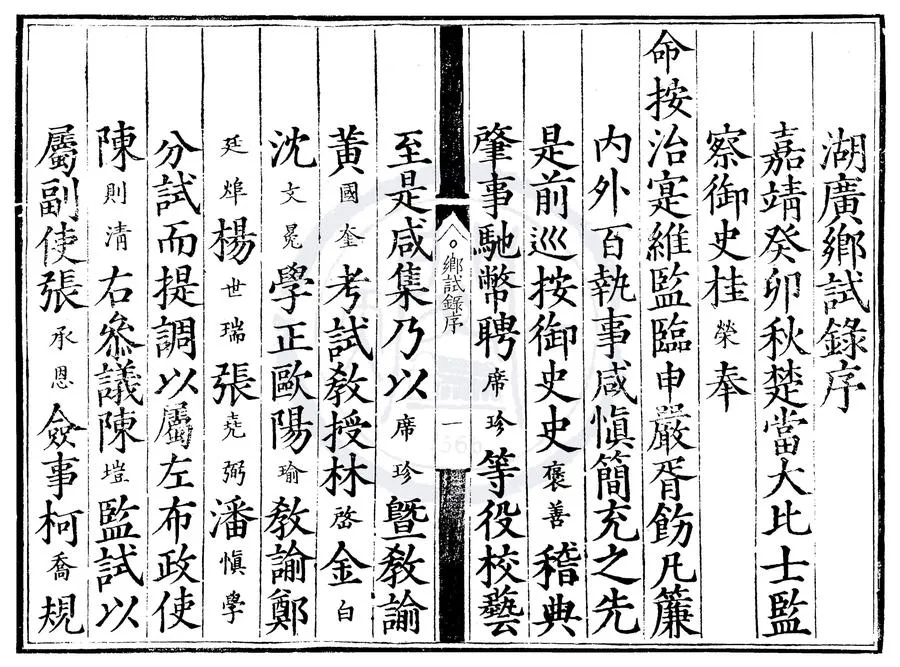 湖廣鄉試錄序
嘉靖癸卯秋楚當大比士監
察御史桂榮奉
命按治寔維監臨申嚴胥飭凡簾
内外百執事咸慎簡充之先
是前巡按御史史褒善稽典
肇事馳幣聘席珍等役校藝
鄉試錄序 一
至是咸集乃以席珍暨教諭
黃國奎考試教授林啓金白
沈文冕學正歐陽瑜教諭鄭
廷埠楊世瑞張堯弼潘慎學
分試而提調以屬左布政使
陳則清右叅議陳塏監試以
屬副使張承恩僉事柯喬規